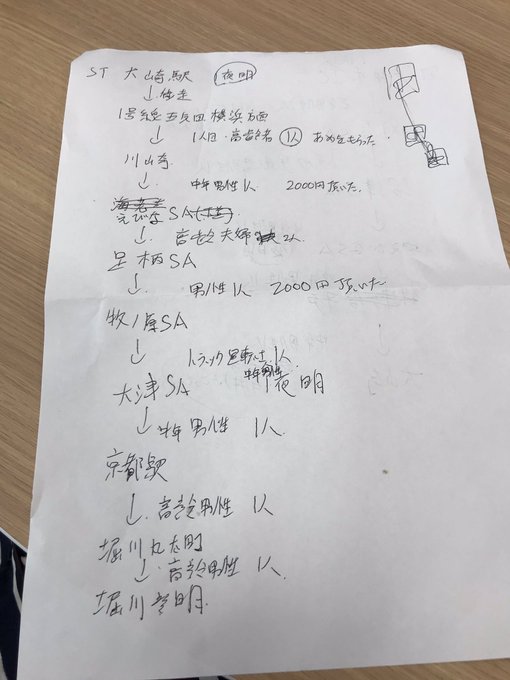 ST 大崎駅 夜明
↓ 徒走
1号線 五反田 横浜方面
↓ 1人目・高齢者 1人 あめをもらった。
川崎
↓ 中年男性 1人 2000円頂いた。
えびなSA
↓ 高齢夫婦 2人
足柄SA
↓ 男性1人 2000円頂いた
牧ノ原SA
↓ トラック運転士 1人
中年男性
大津SA 夜明
↓ 中年男性 1人
京都駅
↓ 高齢男性 1人
堀川丸太町
↓ 高齢男性 1人
堀川